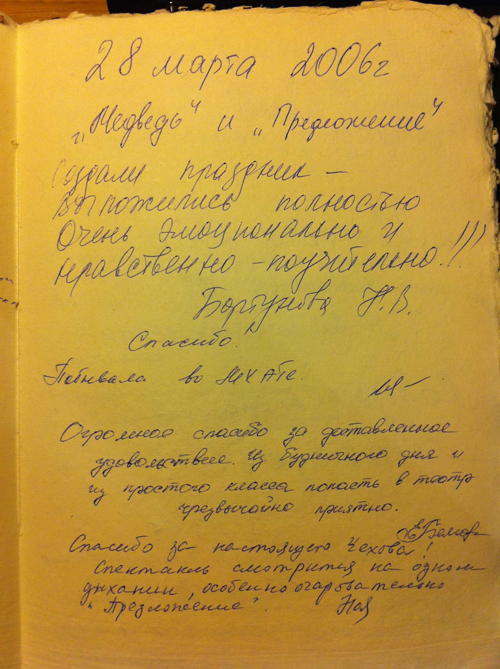 28 марта 2006г
„Медведь" и „Предложение"
Создали праздник –
выложились полностью
Очень эмоционально и
нравственно-поучительно!!!
Бортунова Н.В.
Спасибо.
Побывала во МХАТе.
Огромное спасибо за доставленное
удовольствие. Из будничного дня и
из простого класса попасть в театр
чрезвычайно приятно.
Спасибо за настоящего Чехова!
Спектакль смотрится на одном
дыхании, особенно очаровательно
"Предложение".